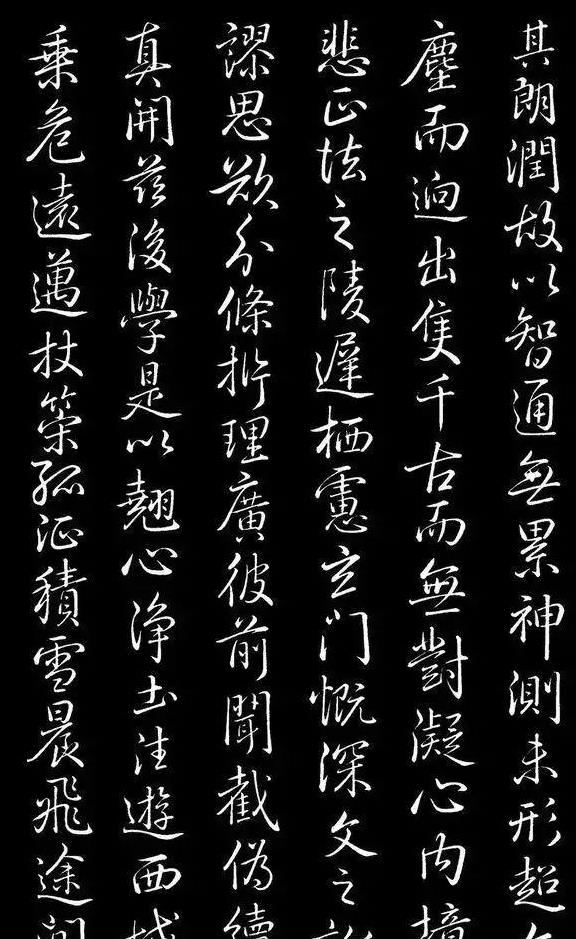 其朗潤故以智通無累神測未形超
塵而迥出隻千古而無對凝心內境
悲正法之陵遲栖慮玄門慨深文之訛
謬思欲分條析理廣彼前聞截偽續
真開茲後學是以翹心淨土往遊西域
乘危遠邁杖策孤征積雪晨飛途間